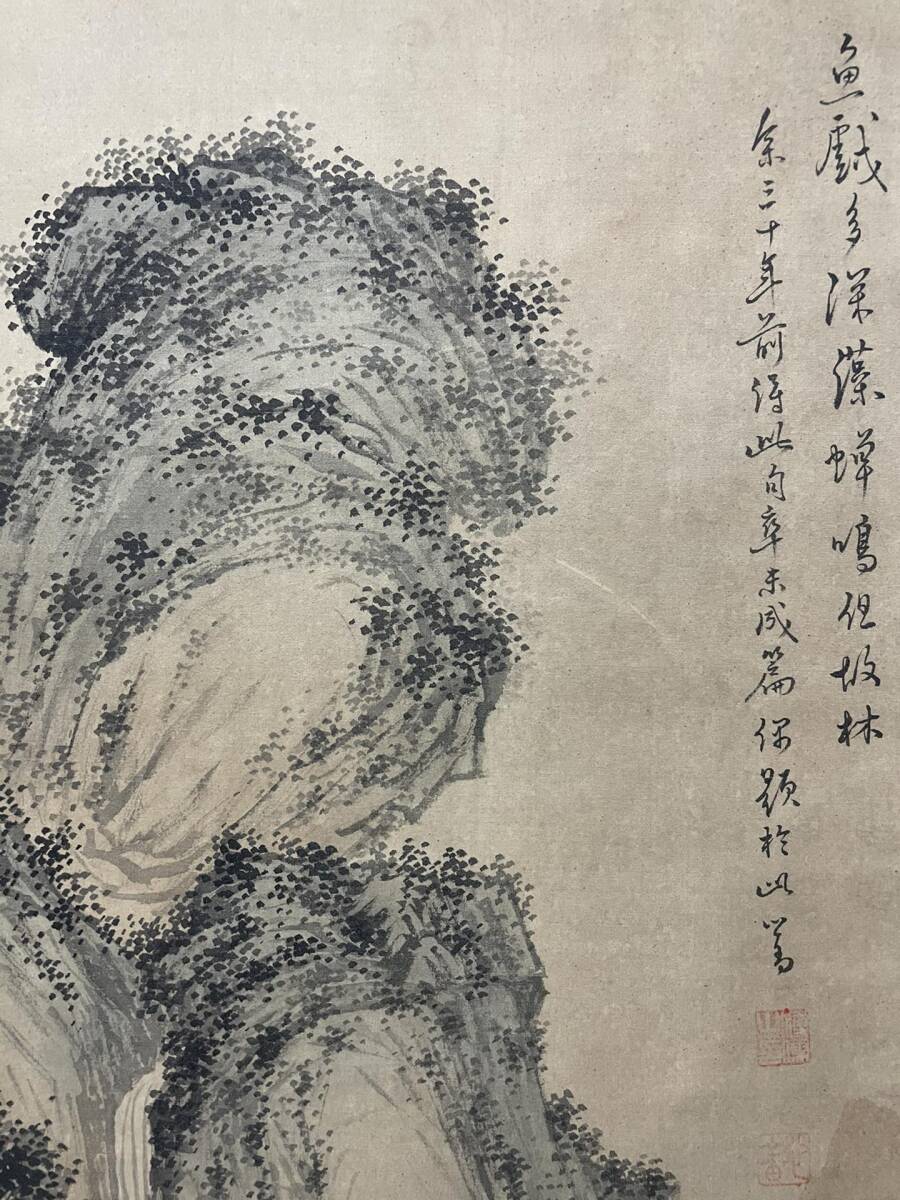 魚戲多深藻蟬鳴但故林
余二十年前得此句卒未成篇偶題於此 溥